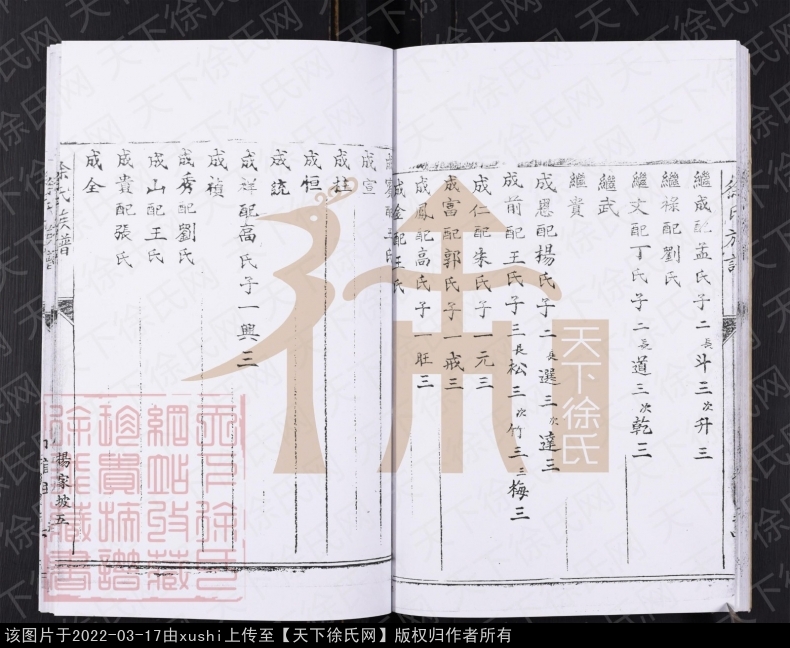 徐氏族譜
繼成配孟氏子二長斗三次升三
繼祿配劉氏
繼文配丁氏子二長道三次乾三
繼武
繼貴
成恩配楊氏子二長選三次達三
成前配王氏子三長松三次竹三三梅三
成仁配朱氏子一元三
成富配郭氏子一戒三
成鳳配高氏子一旺三
成金配王氏
成宣
成柱
成恒
成統
成祥配高氏子一興三
成禎
成秀配劉氏
成山配王氏
成貴配張氏
成全
徐氏族譜
楊家坡五
天下徐氏
天下徐氏网
该图片于2022-03-17由xushi上传至【天下徐氏网】版权归作者所有